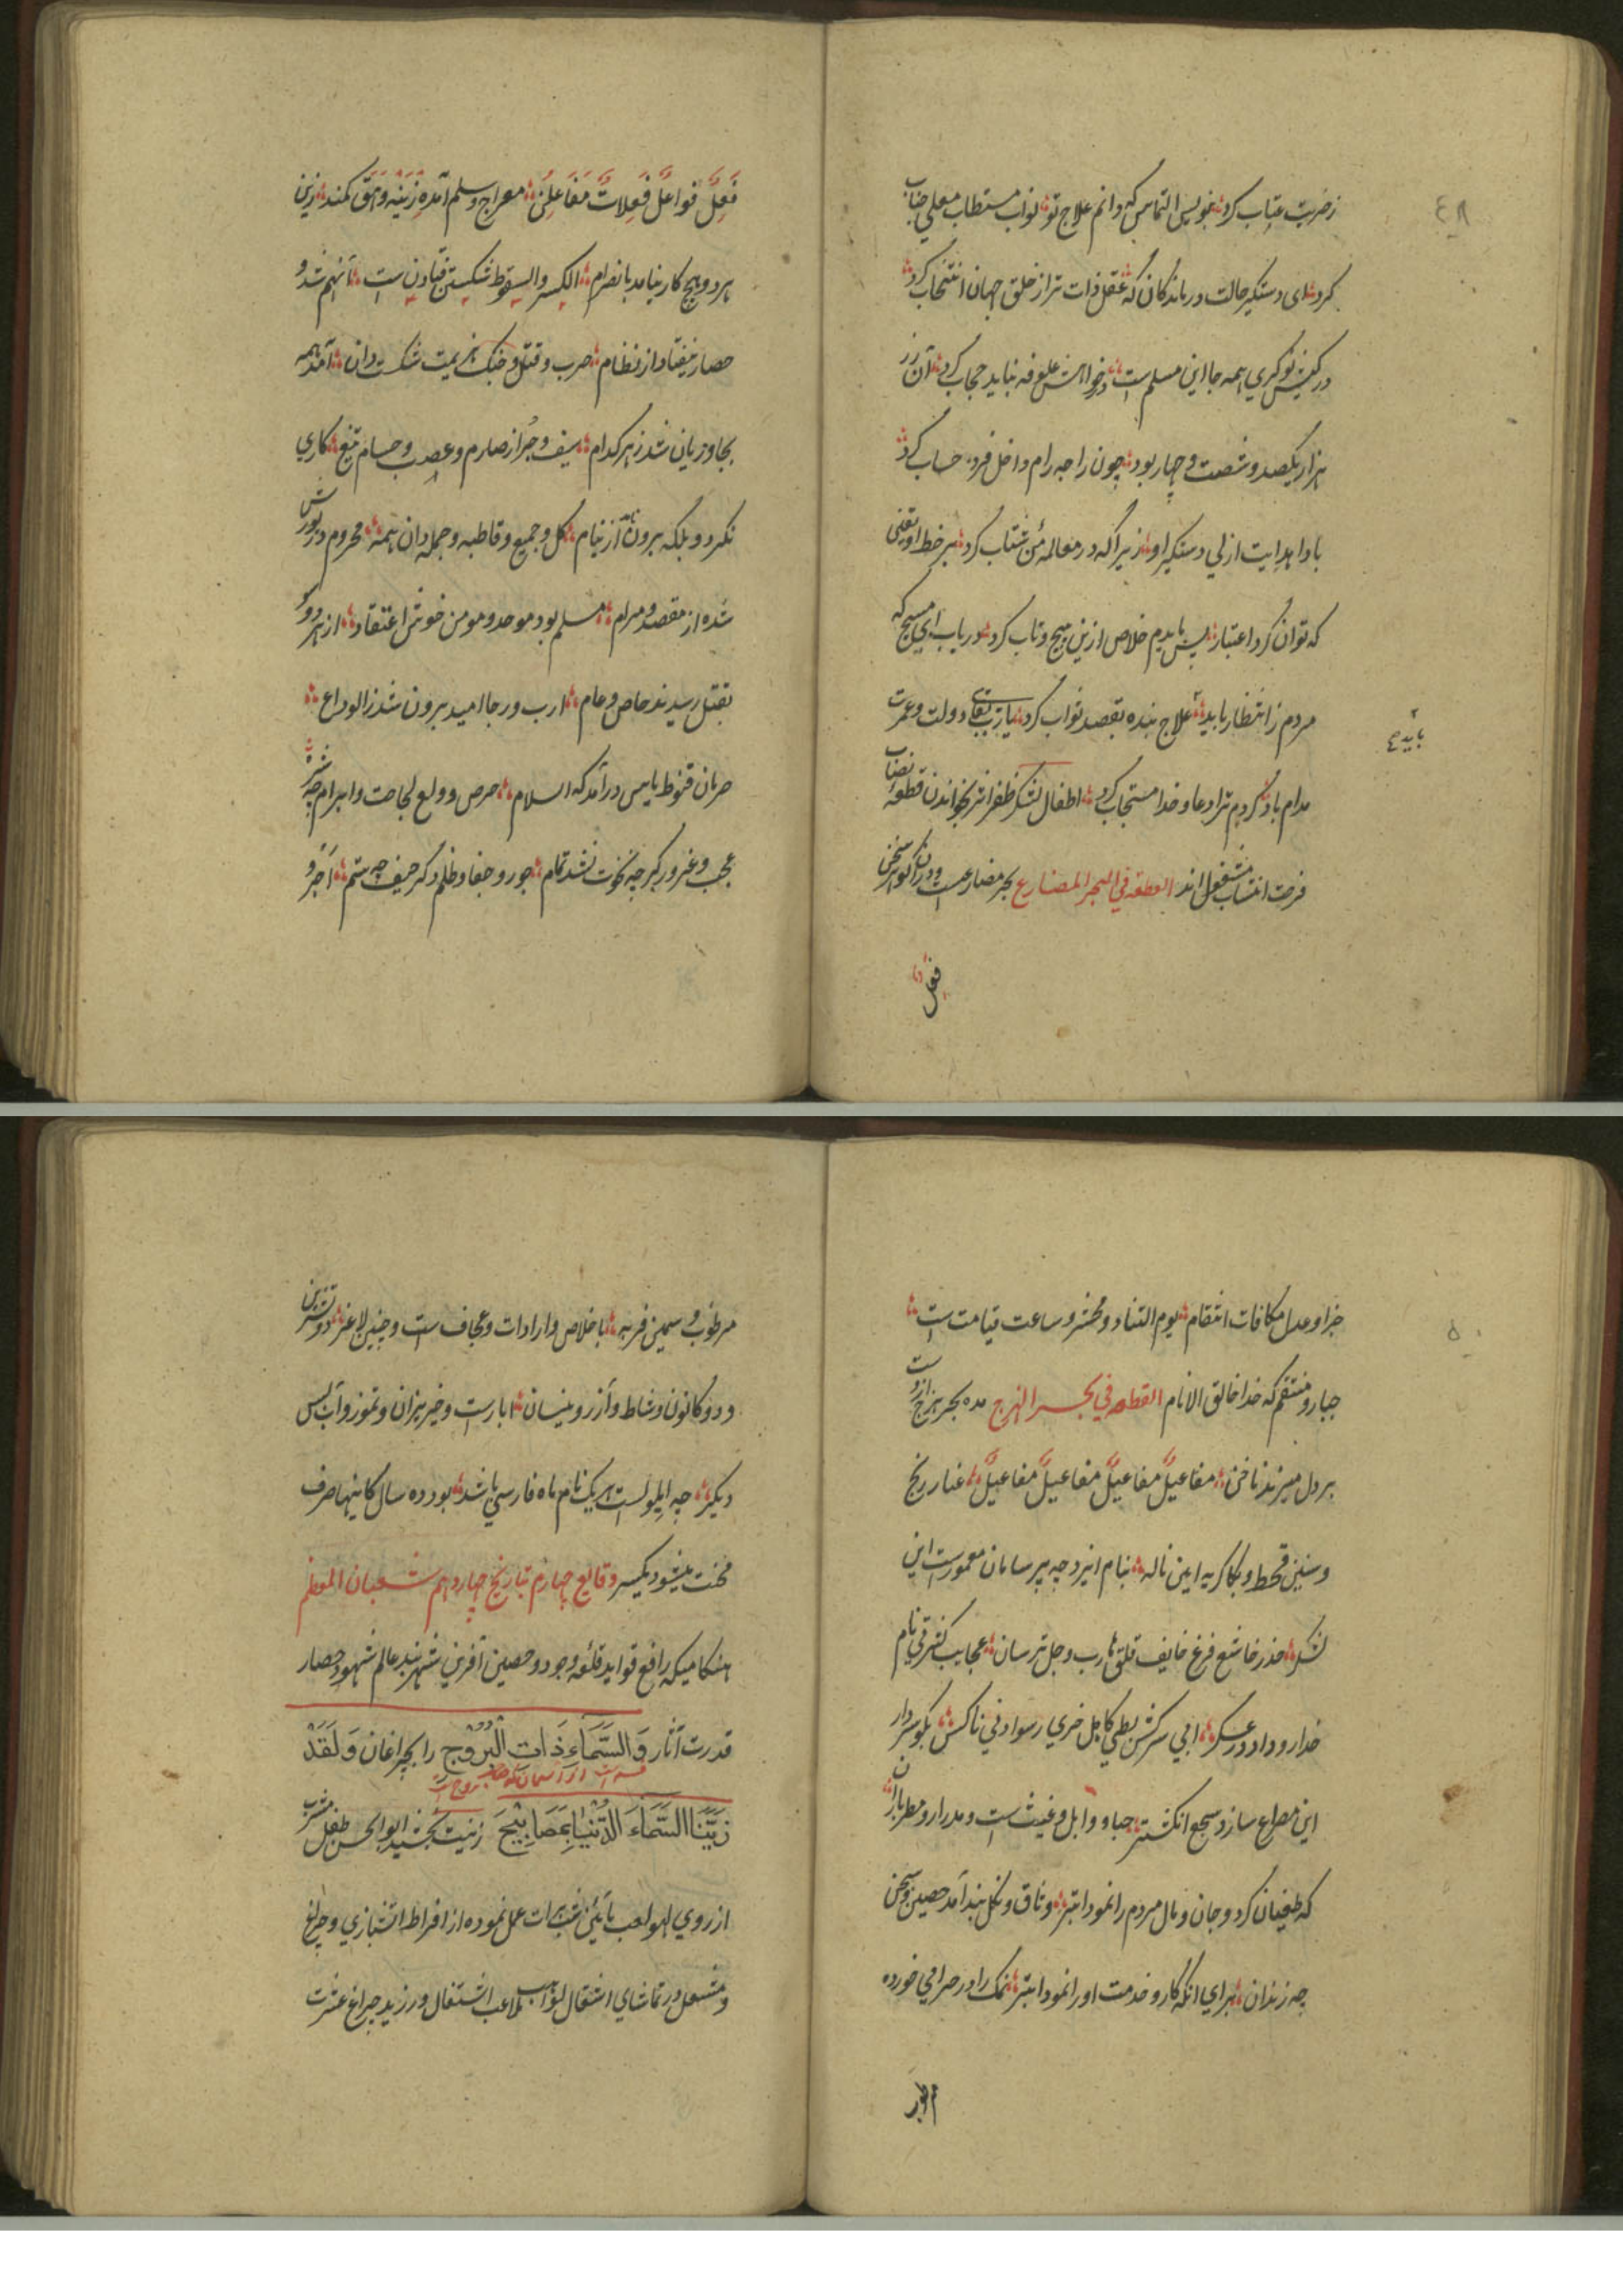 ٤٨
ز ضربت عتاب کرد بنویس التماس که دانم علاج تو نواب مستطاب معلی جناب
کرد ای دستگیر حالت درماندگان که عقل ذات ترا از خلق جهان انتخاب کرد
در کیش نوکری همه جا این مسلم است در خواهش علوفه نباید حجاب کرد آن زر
هزار یکصد و شصت و چهار بود چون راجه رام داخل فرد حساب کرد
بادا هدایت ازلی دستگیر او زیرا که در معامله من شتاب کرد بر خط او یقینی
که توان کرد اعتبار پس بایدم خلاص ازین پیچ و تاب کرد دریاب ای مسیح که
مردم ز انتظار باید علاج بنده بقصد ثواب کرد یارب بقای دولت و عمرت
بایدم
مدام باد کردم ترا دعا و خدا مستجاب کرد اطفال لشکر ظفر اثر بخواندن قطعه نصاب
فرصت انتساب مشغول اند القطعه في البحر المضارع بحر مضارعست و درآن گوهر سخن
فعل
فَعِلُ فواعلُ فَعِلاتُ مَفَاعِلُن معراج و سلم آمده زینه وهق کمند زین
هر دو هیچ کار نیامد بانصرام الکسر والسقوط شکستن فتادن است آنهم نشد و
حصار نیفتاد از نظام حرب و قتل و جنگ هزیمت شکست دان آمد همه
بجا و زیان شد ز هر کدام سیف و جراز صارم و عصب و حسام تیغ کاری
نکرد و بلکه برون نامد از نیام کل و جمیع و قاطبه و جمله دان همه محروم در یورش
شده از مقصد و مرام مسلم بود موحد و مومن خوش اعتقاد از هر دو سو
بقتل رسیدند خاص و عام ارب و رجا امید برون شد ز الوداع
حرمان قنوط یاس درآمد که السلام حرص و ولع لجاجت و ابرام چه شره
عجب و غرور کبر چه نخوت نشد تمام جور و جفا و ظلم دگر حیف چه ستم آخر و
٥٠
جزا و عدل مکافات انتقام یوم التناد و محشر و ساعت قیامت است
جبار و منتقم که خدا خالق الانام القطعه في بحر الهزج مده بحر هزج از دست
بر دل میزند ناخن مفاعیلُ مفاعیلُ مفاعیلُ مفاعیلُ غنا رنج
و سنین قحط و بکا گریه این ناله بنام ایزد چه پر سامان معمورست این
لشکر حذر خاشع فزع خایف قلق هارب وجل ترسان عجایب کثرتی نام
خدا رو داد در عسکر ابی سرکش بطی کاهل خزی رسوا دنی ناکس بگو سردار
این مصراع سازد سجع انگشتر حیا و وابل و غیث است و مدرار و مطر باران
که طغیان کرد و جان و مال مردم را نمود ابتر وثاق و نکل بند آمد حصین و سجن
چه زندان برای آنکه کار و خدمت او را نمود ابتر نمک را در صراحی خورده
مرطوب و سمین فربه با خلاص و ارادات و عجاف است و جنین لاغر دو تشرین
و دو کانون و شباط و آزر و نیسان ایارست و خزیران و تموز و آب پس
دیگر چه ایلولست هر یک نام ماه فارسی باشد بود ده سال کاینها صرف
محنت میشود یکسر وقایع چهارم بتاریخ چهاردهم شعبان المعظم
هنگامیکه رافع قواید قلعه وجود و حصین آفرین شهربند عالم شهود حصار
قدرت آثار وَالسَّمَاءِ ذَاتِ الْبُرُوجِ را بچراغان وَلَقَدْ
زَيَّنَّا السَّمَاءَ الدُّنْيَا بِمَصَابِيحَ زینت بخشید ابوالحسن طفل مشرب
از روی لهو لعب بآئین شب برات عمل نموده از افراط آتشبازی و چراغ
و مشعل در تماشای اشتعال لهب ملاعب اشتغال ورزید چراغ عشرت